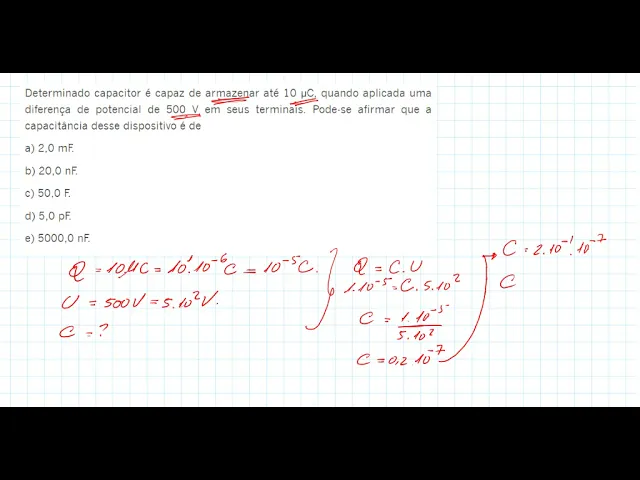 Determinado capacitor é capaz de armazenar até 10 µC, quando aplicada uma
diferença de potencial de 500 V em seus terminais. Pode-se afirmar que a
capacitância desse dispositivo é de
a) 2,0 mF.
b) 20,0 nF.
c) 50,0 F.
d) 5,0 pF.
e) 5000,0 nF.
Q = 10µC = 10¹.10⁻⁶C = 10⁻⁵C.
U = 500V = 5.10²V.
C = ?
Q = C.U
1.10⁻⁵ = C.5.10²
C = 1.10⁻⁵
5.10²
C = 0,2.10⁻⁷
C = 2.10⁻¹.10⁻⁷
C